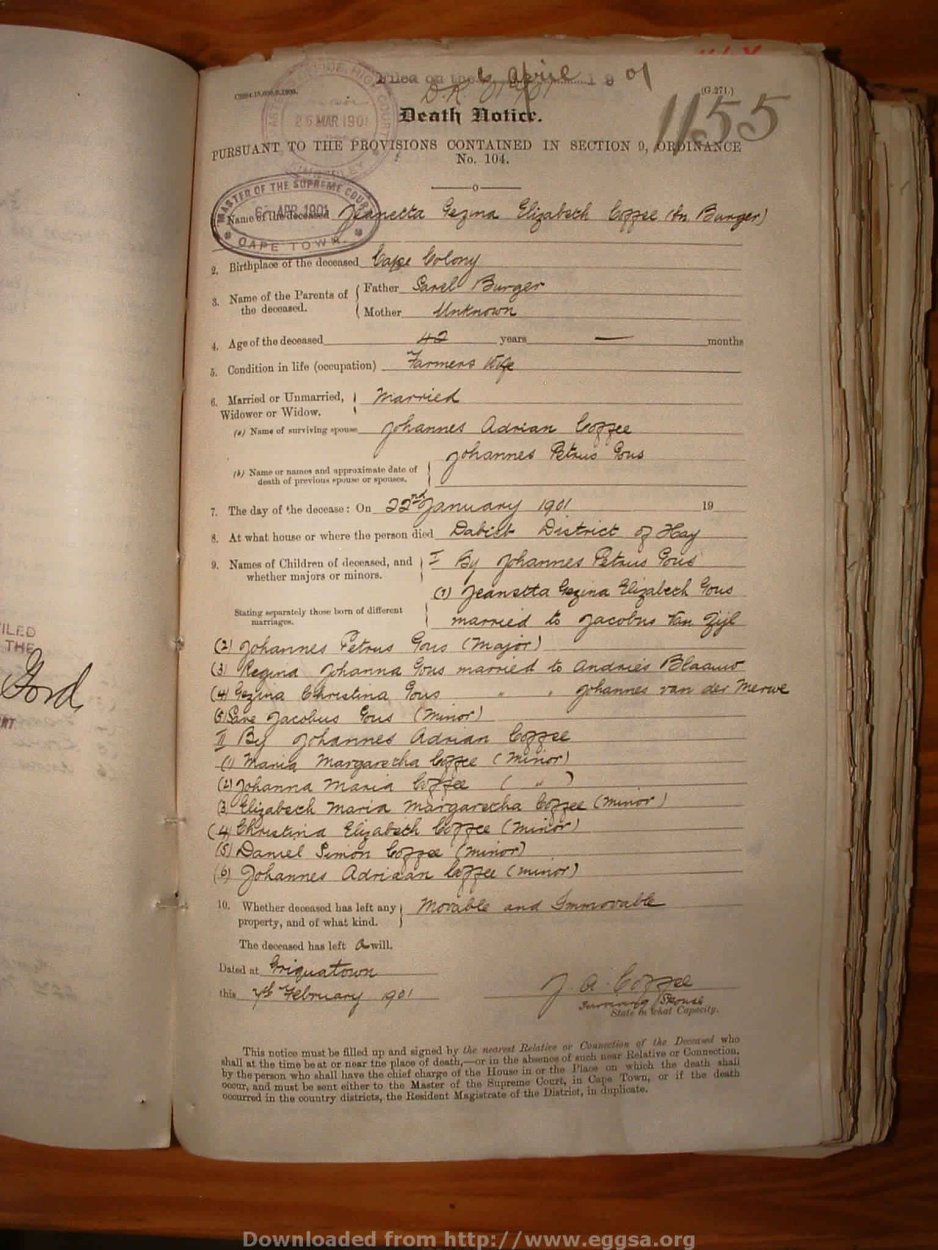 Filed on the 6 April 1901
D.R. 01/701
(G.271.)
1155
25 MAR 1901
Death Notice.
PURSUANT TO THE PROVISIONS CONTAINED IN SECTION 9, ORDINANCE
No. 104.
MASTER OF THE SUPREME COURT
APR 1901
CAPE TOWN
Name of the deceased Jeanetta Gezina Elizabeth Coffee (bn Burger)
2. Birthplace of the deceased Cape Colony
3. Name of the Parents of the deceased. Father Sarel Burger
Mother Unknown
4. Age of the deceased 42 years — months
5. Condition in life (occupation) Farmers Wife
6. Married or Unmarried, Widower or Widow. Married
(a) Name of surviving spouse Johannes Adrian Coffee
Johannes Petrus Gous
(b) Name or names and approximate date of death of previous spouse or spouses.
7. The day of the decease: On 22nd January 1901 19
8. At what house or where the person died District of Hay
9. Names of Children of deceased, and whether majors or minors. I By Johannes Petrus Gous
(1) Jeanetta Gezina Elizabeth Gous
Stating separately those born of different marriages. married to Jacobus Van Zijl
(2) Johannes Petrus Gous (Major)
(3) Regina Johanna Gous married to Andries Blaauw
(4) Gezina Christina Gous " " Johannes van der Merwe
(5) Jacobus Gous (Minor)
II By Johannes Adrian Coffee
(1) Maria Margaretha Coffee (Minor)
(2) Johanna Maria Coffee ( " )
(3) Elizabeth Maria Margaretha Coffee (minor)
(4) Christina Elizabeth Coffee (minor)
(5) Daniel Simon Coffee (minor)
(6) Johannes Adriaan Coffee (minor)
10. Whether deceased has left any property, and of what kind. Movable and Immovable
The deceased has left a will.
Dated at Griquatown
this 7th February 1901
J. A. Coffee
Surviving Spouse
State in what Capacity.
This notice must be filled up and signed by the nearest Relative or Connection of the Deceased who
shall at the time be at or near the place of death,—or in the absence of such near Relative or Connection,
by the person who shall have the chief charge of the House in or the Place on which the death shall
occur, and must be sent either to the Master of the Supreme Court, in Cape Town, or if the death
occurred in the country districts, the Resident Magistrate of the District, in duplicate.
FILED
THE
Ford
Downloaded from http://www.eggsa.org